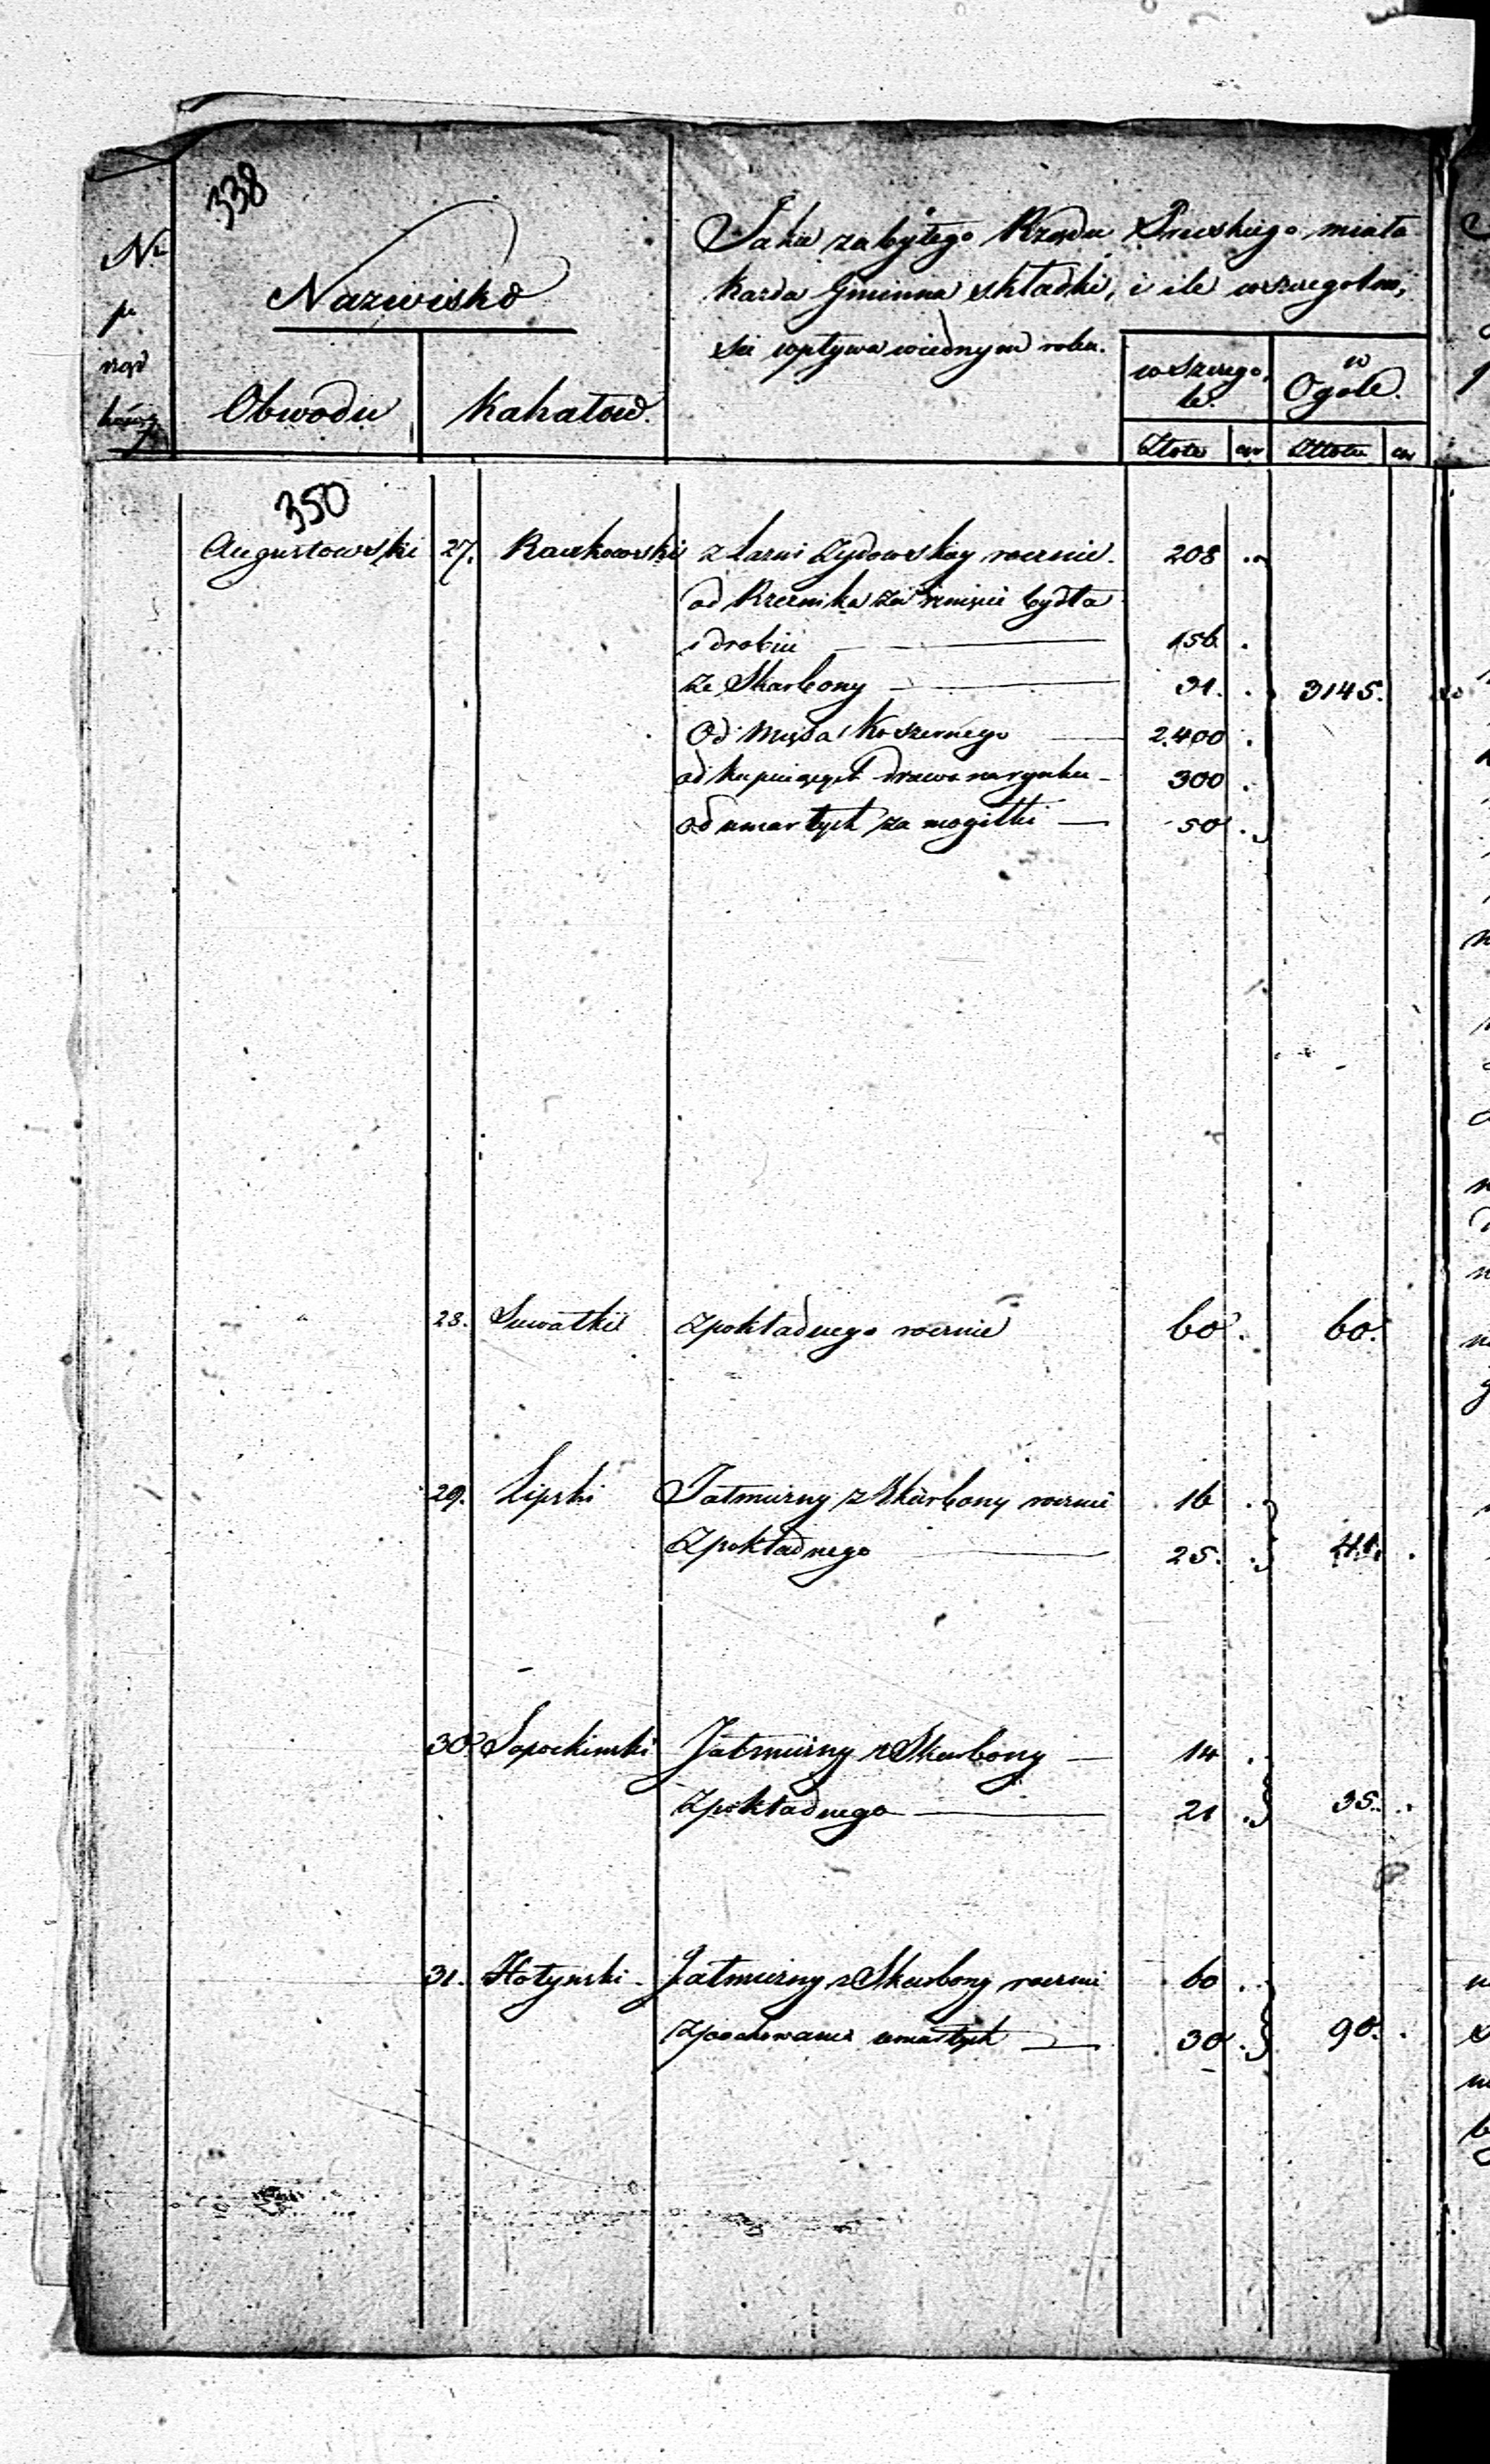 338
Nr
p
rząd
Nazwisko
Obwodu
Kahałow.
Jakie za byłego Rządu Pruskiego miała
każda Gminna składki, i ile wszczegolno,
ści wpływa wiednym roku.
wszczego,
le.
w
Ogole.
Złote
Złote
350
Augustowski 27. Raczkowski z Łazni Zydowskiey rocznie. 208
od Rzeznika za rznięcie bydła
i drobiu 156.
ze Skarbony 31. 3145.
Od Mięsa Koszernego 2.400
od kupuiących drzewo na rynku 300
od umarłych za mogiłki 50
28. Suwałki Zpokładnego rocznie 60. 60.
29. Lipski Jałmużny z Skarbony rocznie 16
Zpokładnego 25. 41.
30. Sopoćkinski Jałmużny z Skarbony 14
Zpokładnego 21 35.
31. Hołynski Jałmużny z Skarbony rocznie 60
Zpochowania umarłych 30 90.